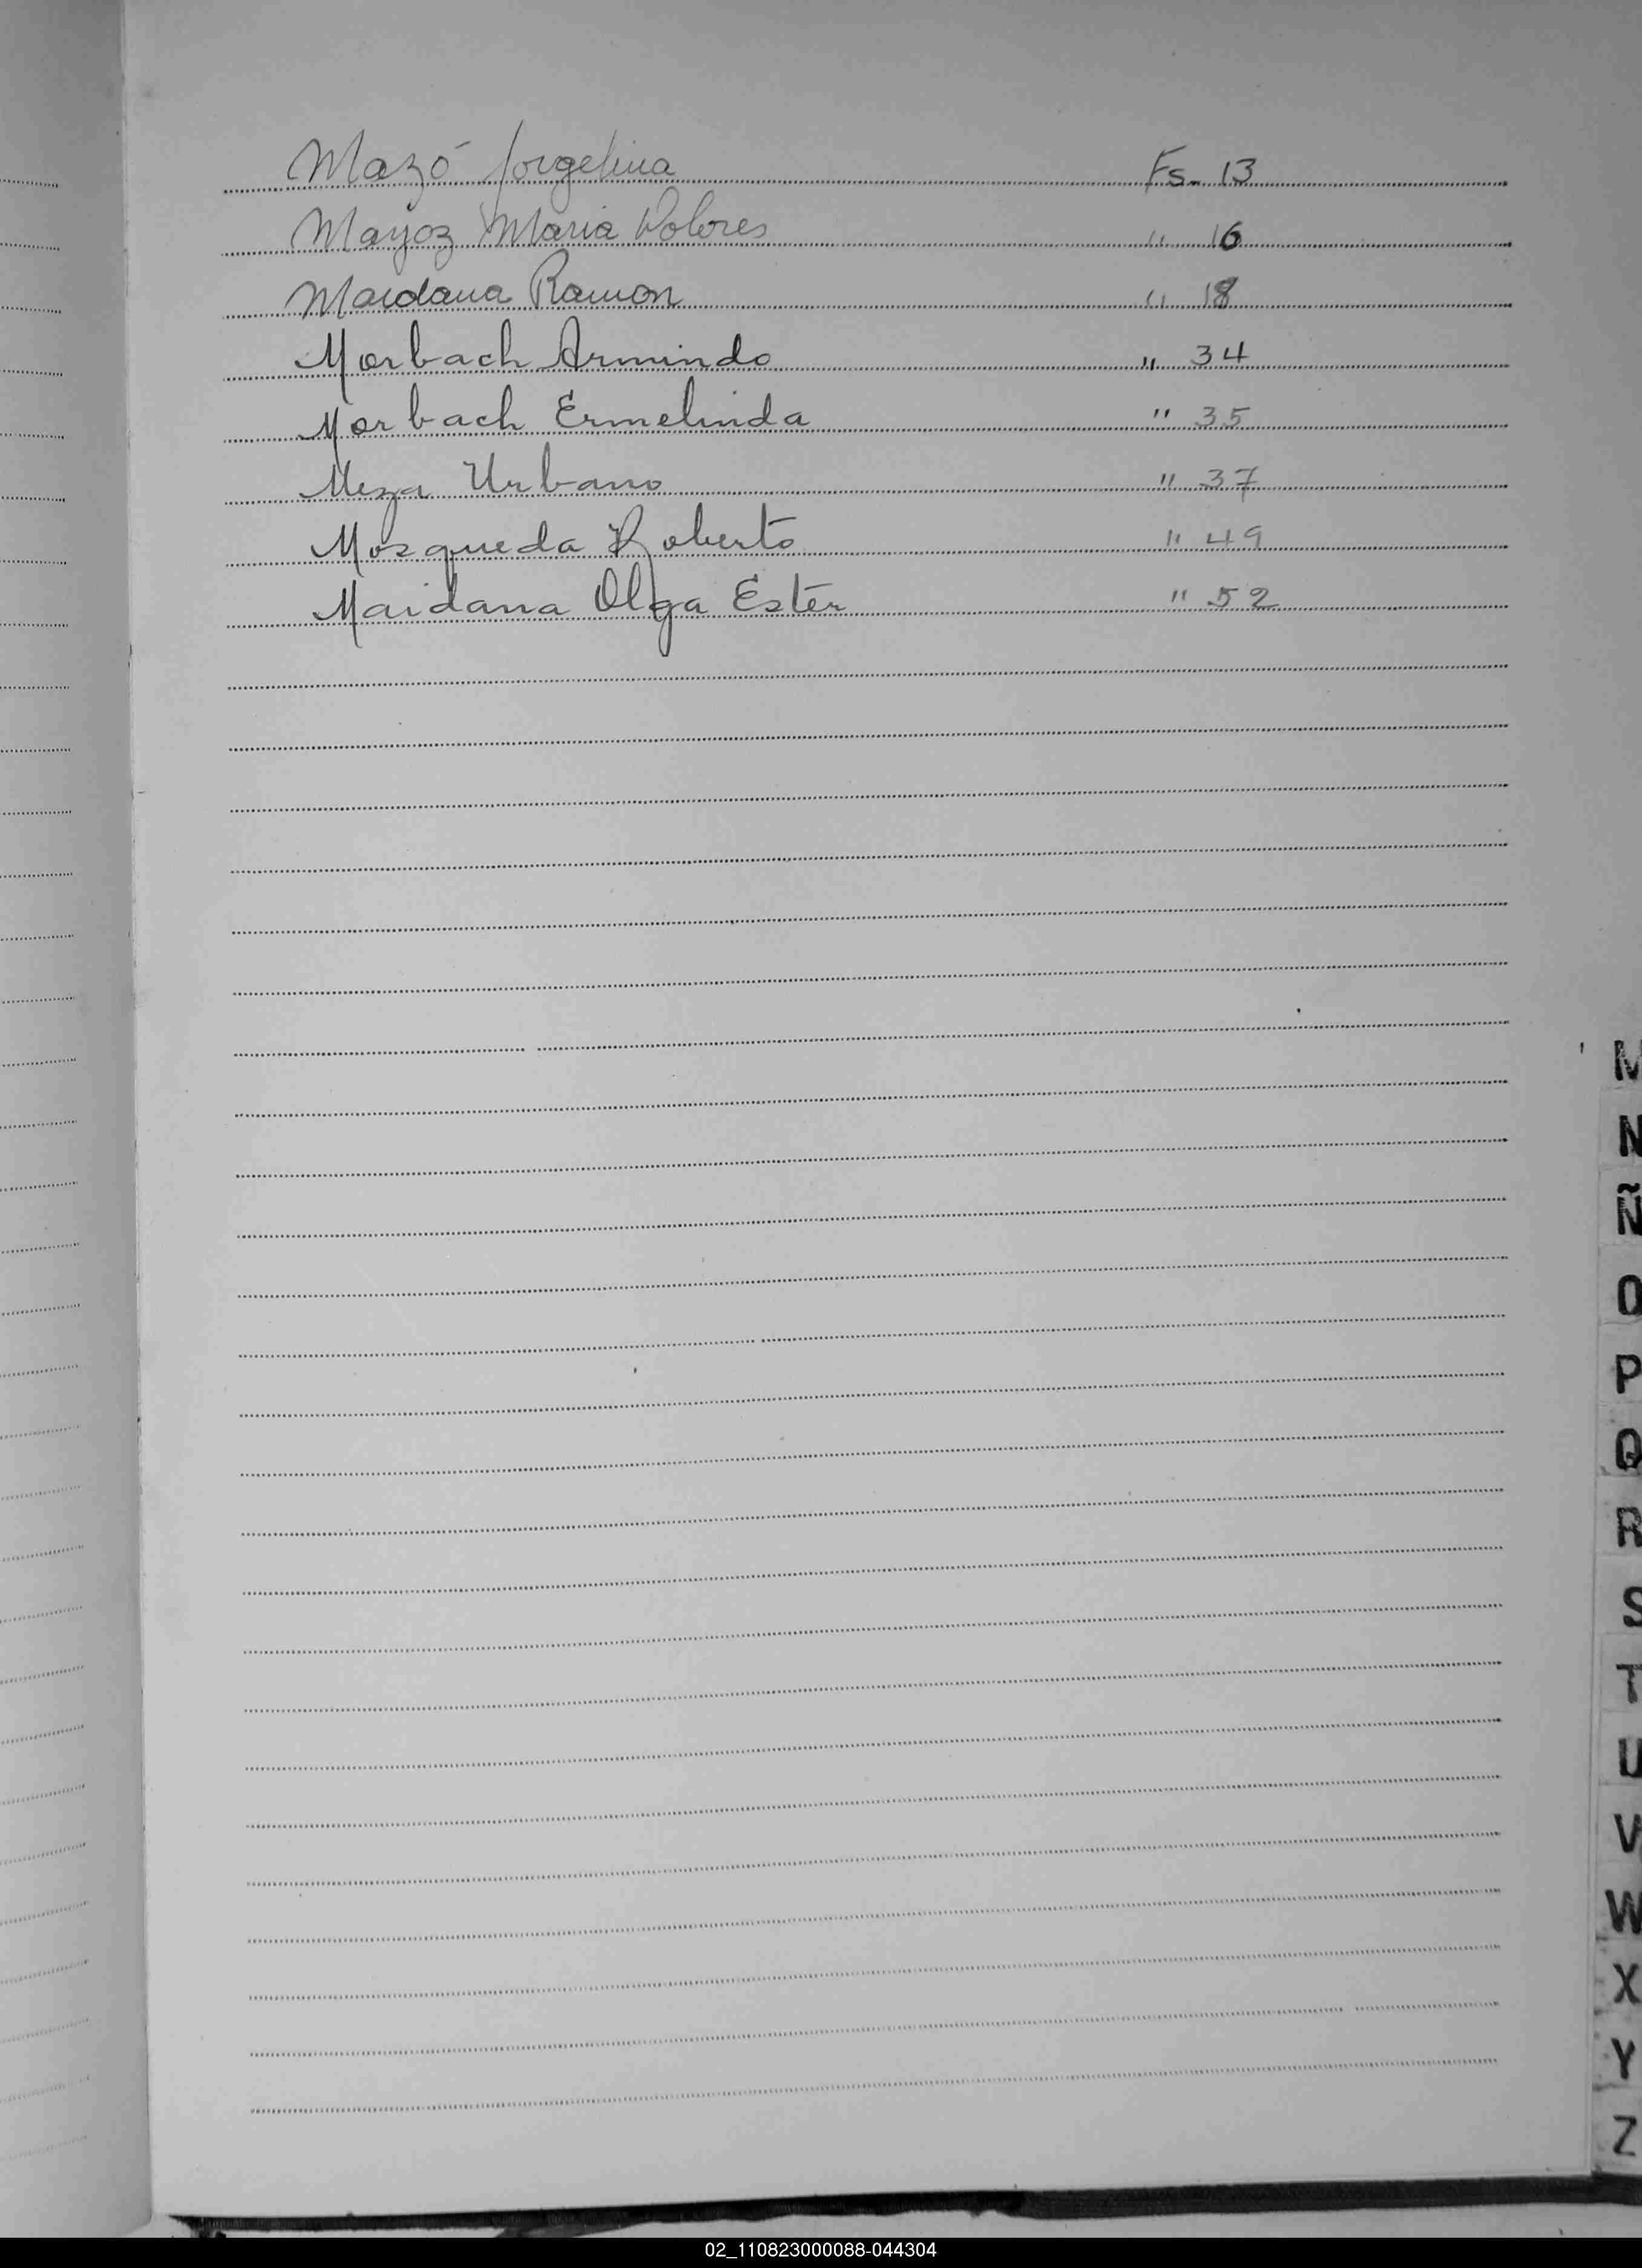 Mazó Jorgelina Fs. 13
Mayoz Maria Dolores " 16
Maidana Ramon " 18
Morbach Armindo " 34
Morbach Ermelinda " 35
Meza Urbano " 37
Mosqueda Roberto " 49
Maidana Olga Ester " 52
M
N
Ñ
O
P
Q
R
S
T
U
V
W
X
Y
Z
02_110823000088-044304